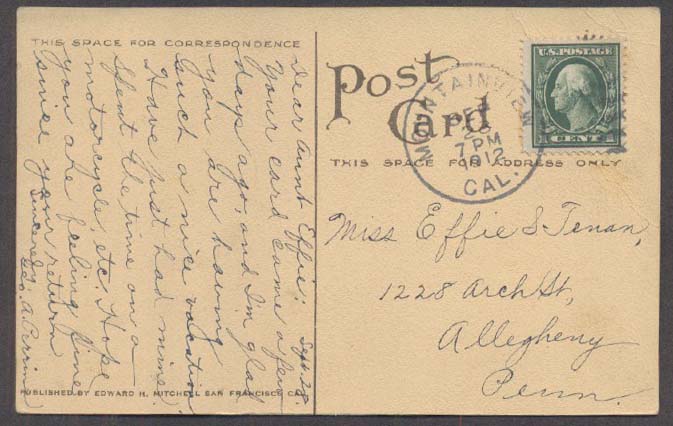 THIS SPACE FOR CORRESPONDENCE
Sept. 28.
Dear Aunt Effie:
Your card came a few
days ago, and I'm glad
you are having
such a nice vacation
Have just had mine.
Spent the time on a
motorcycle, etc. Hope
you are feeling fine
since your return
Sincerely,
Geo. A. Perrin
PUBLISHED BY EDWARD H. MITCHELL SAN FRANCISCO CAL.
Post
Card
THIS SPACE FOR ADDRESS ONLY
MOUNTAINVIEW
SEP
28
7 PM
1912
CAL.
U.S. POSTAGE
1 CENT 1
Miss Effie S Tenan,
1228 Arch St,
Allegheny
Penn.